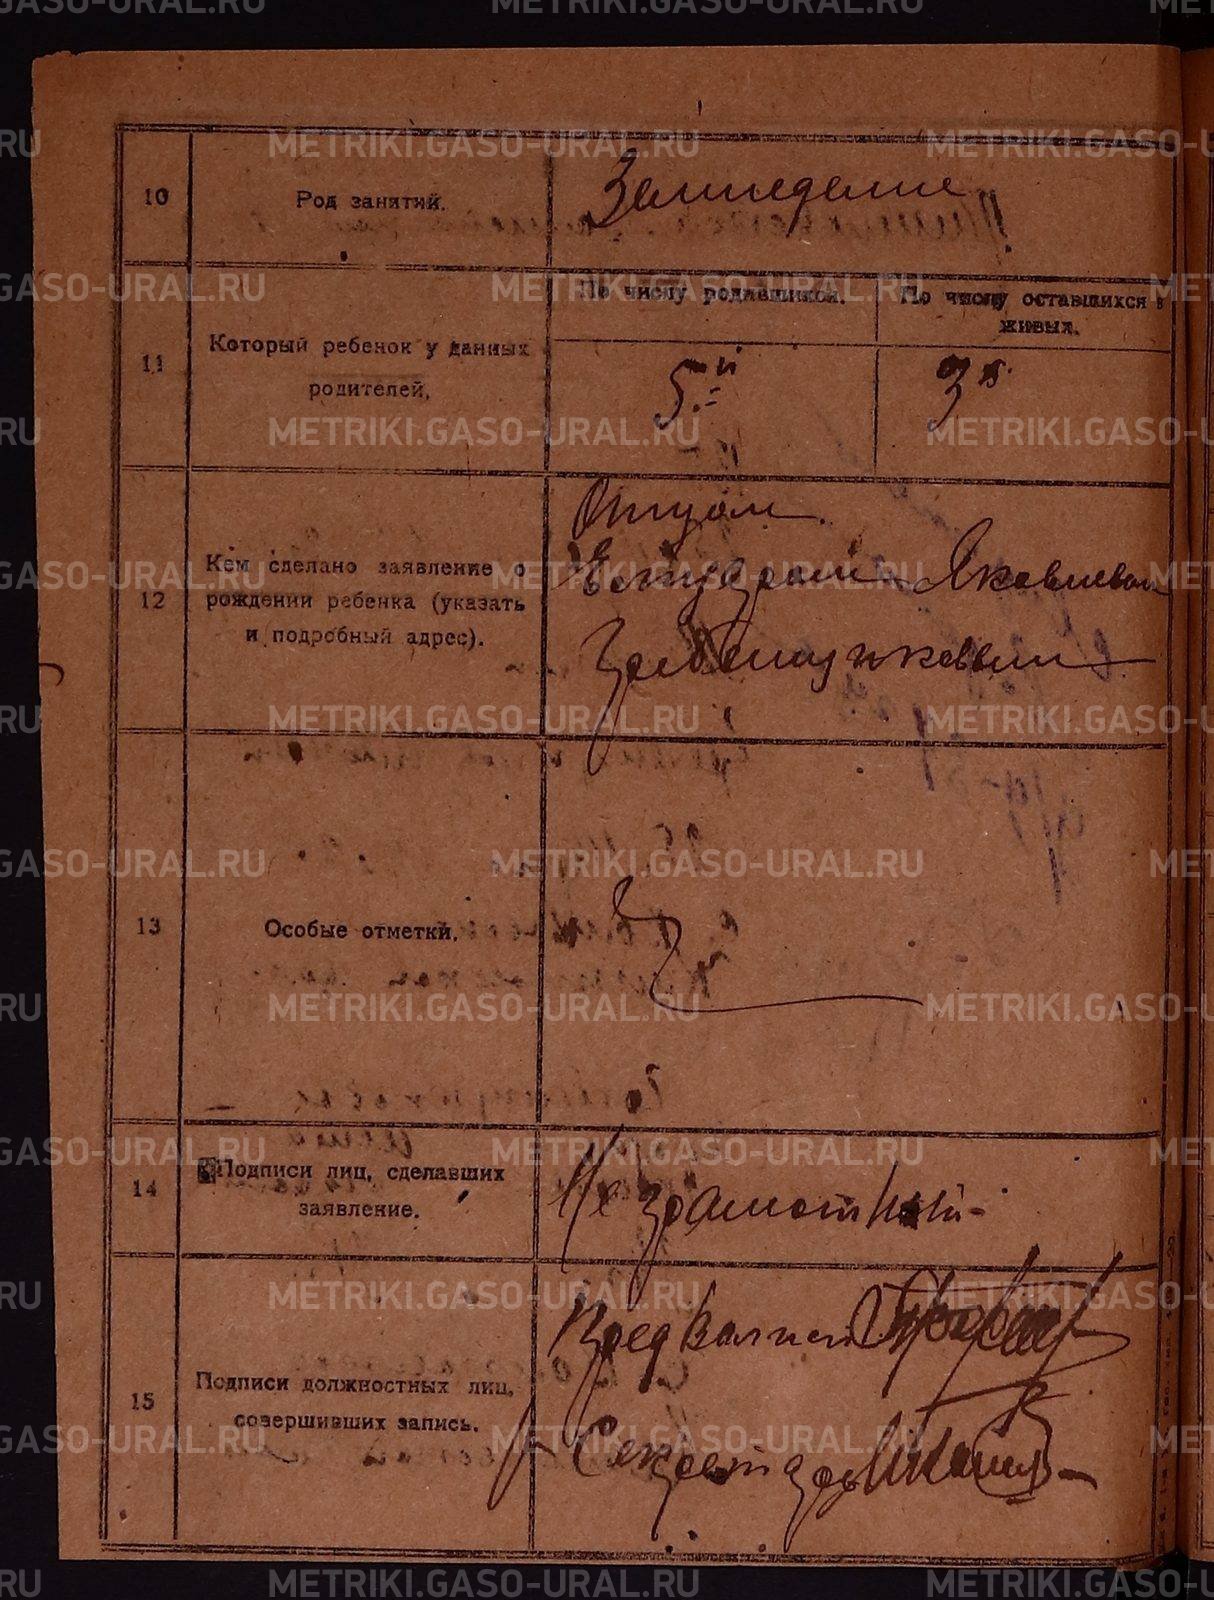 10
Род занятий.
Земледелие
11
Который ребенок у данных
родителей.
По числу родившихся.
По числу оставшихся в
живых.
5-й
3й
12
Кем сделано заявление о
рождении ребенка (указать
и подробный адрес).
Отцом
Яковлевым
13
Особые отметки.
14
Подписи лиц, сделавших
заявление.
Неграмотный
15
Подписи должностных лиц,
совершивших запись.
Предволисп
Секретарь
METRIKI.GASO-URAL.RU